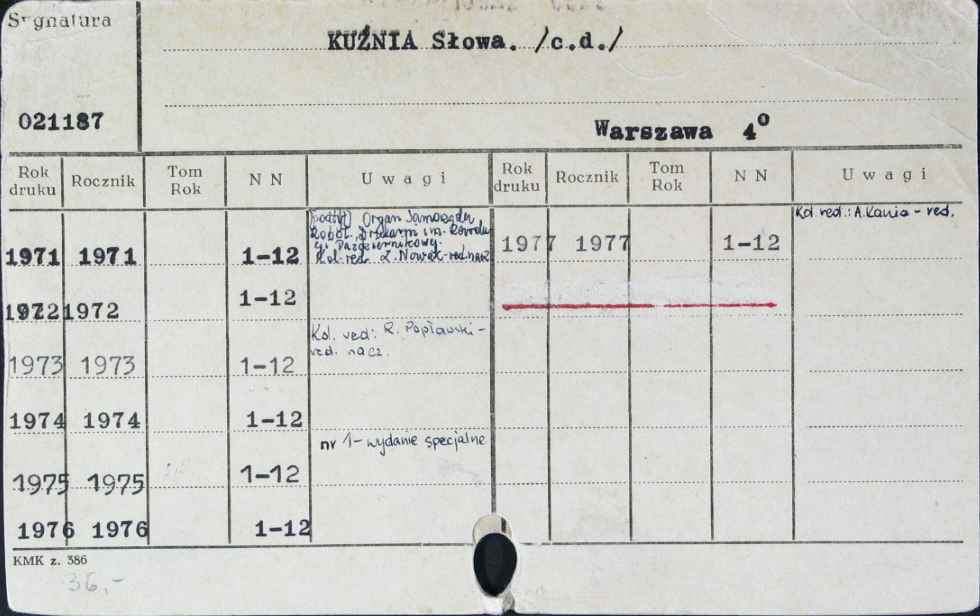 Sygnatura
KUŹNIA Słowa. /c.d./
021187
Warszawa 4°
Rok druku Rocznik Tom Rok N N Uwagi Rok druku Rocznik Tom Rok N N Uwagi
[Podtyt] Organ Samorządu
Robot. Drukarni im. Rewolu
cji Październikowej.
1971 1971 1-12 Kol. red. Z. Nowak-red. nacz
1977 1977 1-12 Kol. red.: A. Kania - red.
1972 1972 1-12
Kol. red: R. Popławski -
red. nacz.
1973 1973 1-12
1974 1974 1-12
nr 1- wydanie specjalne
1975 1975 1-12
1976 1976 1-12
KMK z. 386
36,-